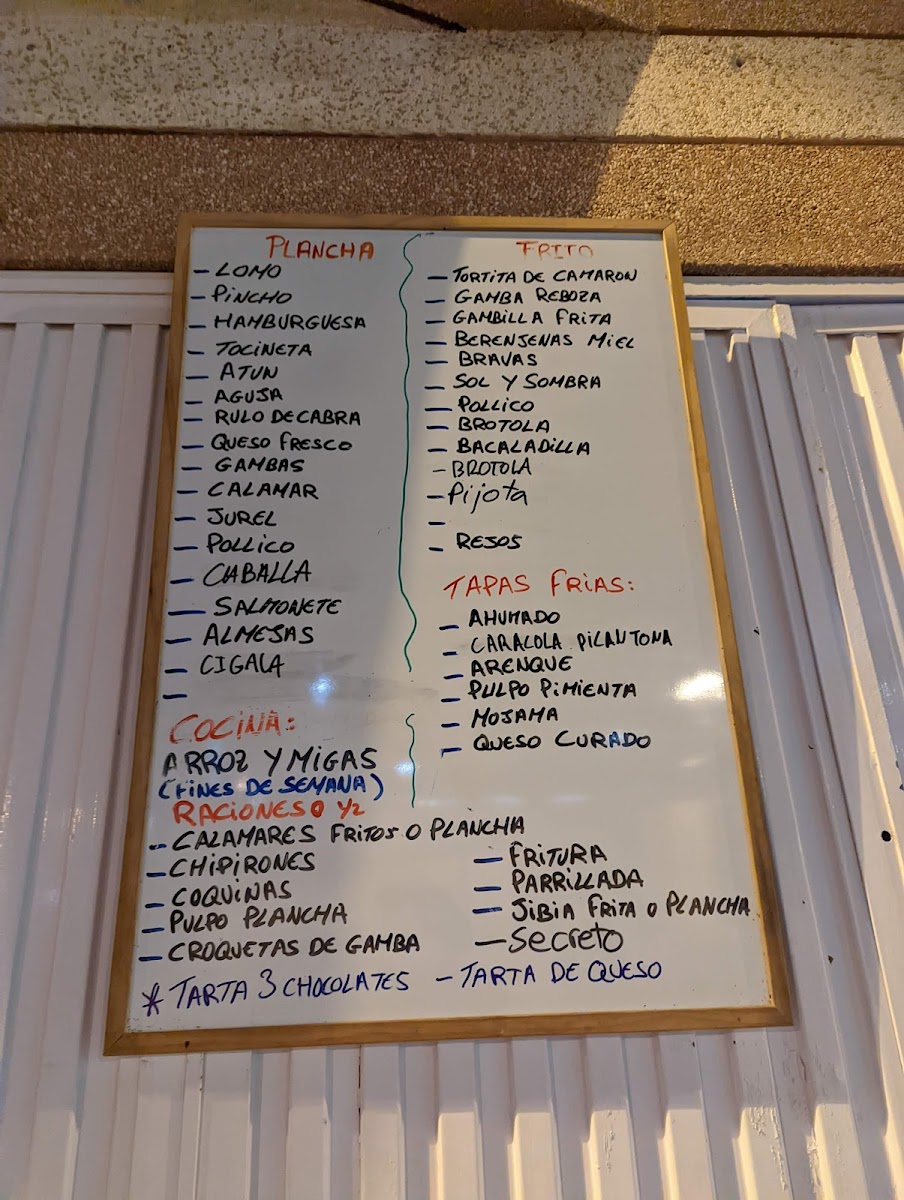 PLANCHA
- LOMO
- PINCHO
- HAMBURGUESA
- TOCINETA
- ATUN
- AGUJA
- RULO DE CABRA
- QUESO FRESCO
- GAMBAS
- CALAMAR
- JUREL
- POLLICO
- CABALLA
- SALMONETE
- ALMEJAS
- CIGALA
-
FRITO
- TORTITA DE CAMARON
- GAMBA REBOZA
- GAMBILLA FRITA
- BERENJENAS MIEL
- BRAVAS
- SOL Y SOMBRA
- POLLICO
- BROTOLA
- BACALADILLA
- BROTOLA
- Pijota
-
- REJOS
TAPAS FRIAS:
- AHUMADO
- CARACOLA PILANTONA
- ARENQUE
- PULPO PIMIENTA
- MOJAMA
- QUESO CURADO
COCINA:
ARROZ Y MIGAS
(FINES DE SEMANA)
RACIONES O 1/2
- CALAMARES FRITOS O PLANCHA
- CHIPIRONES
- COQUINAS
- PULPO PLANCHA
- CROQUETAS DE GAMBA
- FRITURA
- PARRILLADA
- JIBIA FRITA O PLANCHA
- Secreto
* TARTA 3 CHOCOLATES - TARTA DE QUESO